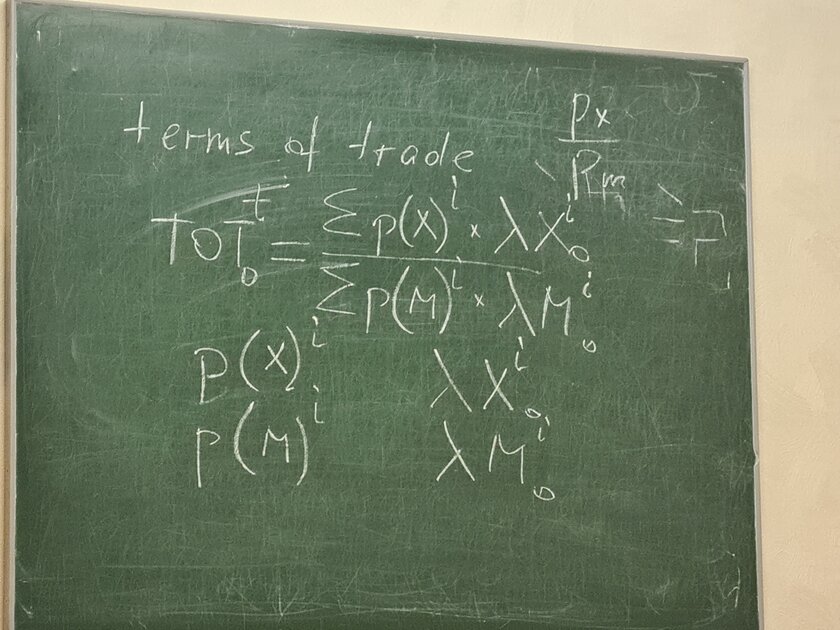 terms of trade
Px
Pm
ToT₀ᵗ = Σ p(X)ⁱ × λX₀ⁱ
Σ p(M)ⁱ × λM₀ⁱ
p(X)ⁱ λX₀ⁱ
p(M)ⁱ λM₀ⁱ